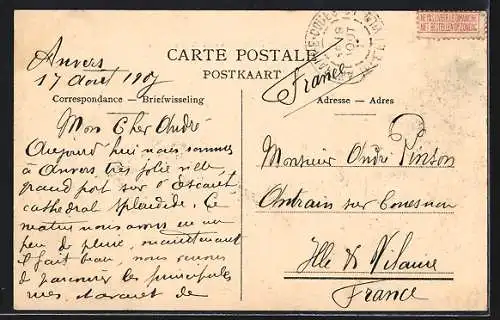 NE PAS LIVRER LE DIMANCHE
NIET BESTELLEN OP ZONDAG
CARTE POSTALE
POSTKAART
Anvers
17 Août 190
France
Correspondance — Briefwisseling
Adresse — Adres
Mon Cher André
Aujourd hui nous sommes
à Anvers très jolie ville
grand port sur l'Escaut
cathedral splendide. Ce
matin nous avons eu un
peu de pluie, maintenant
il fait beau, nous venons
de parcourir les principales
rues, et avant de
Monsieur André Pinson
Antrain sur Couesnon
Ille & Vilaine
France